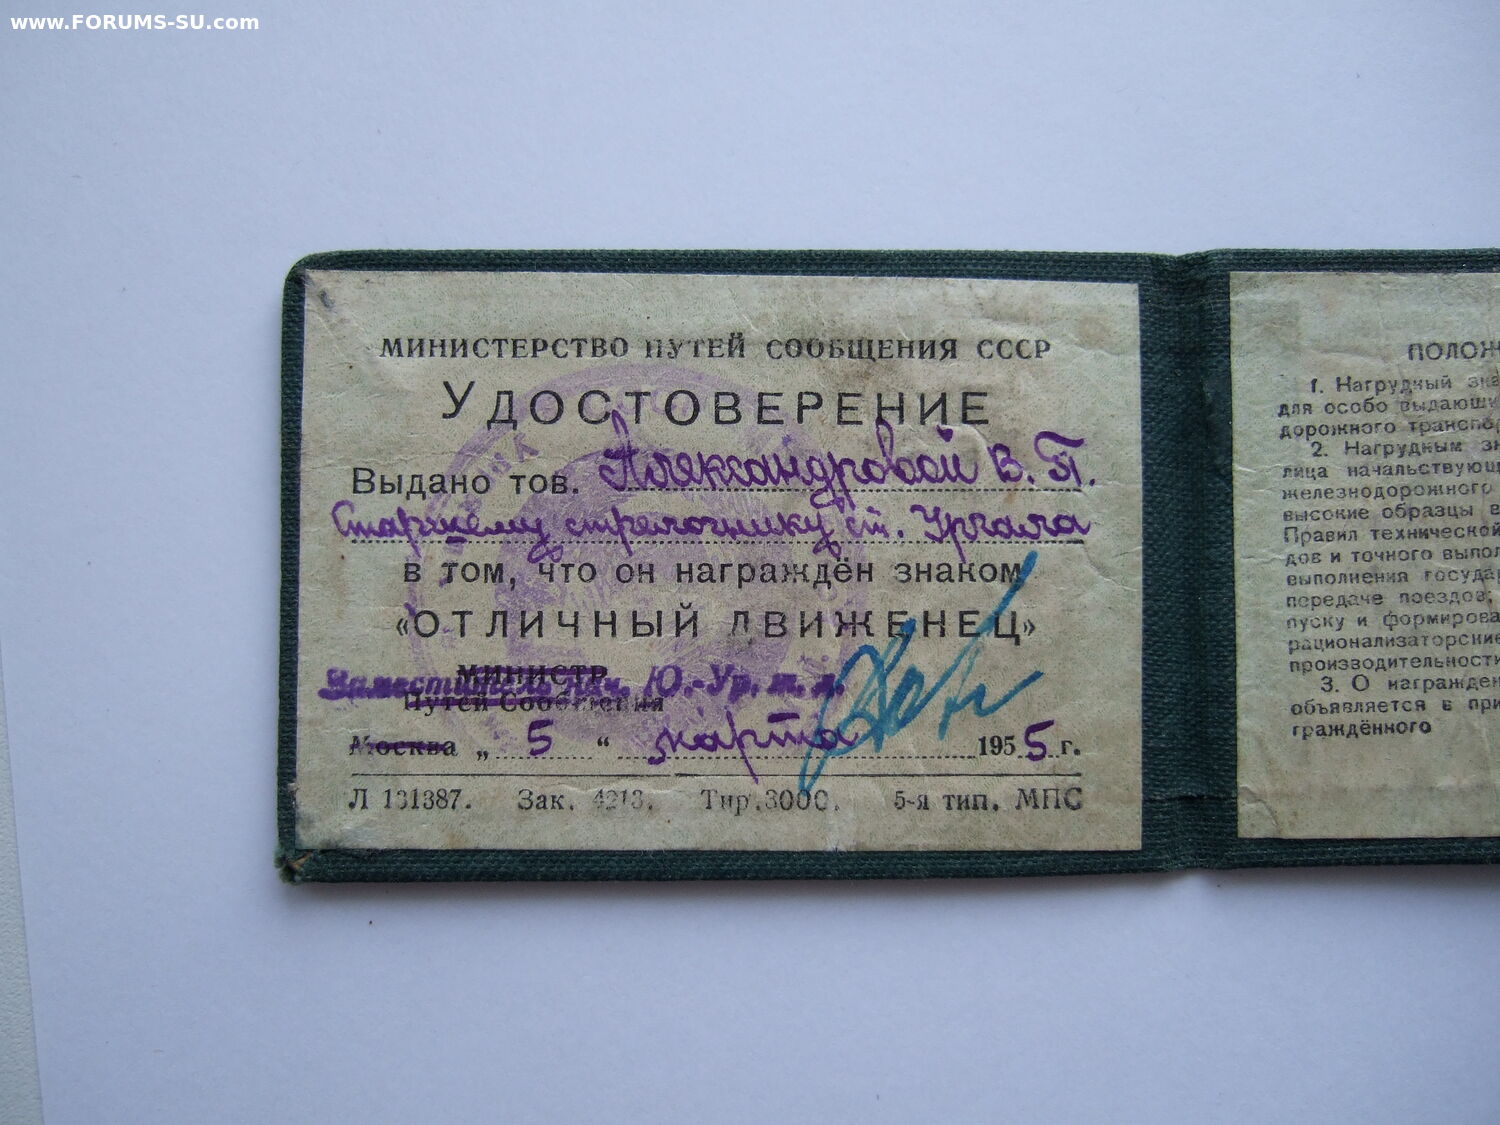 www.FORUMS-SU.com
МИНИСТЕРСТВО ПУТЕЙ СООБЩЕНИЯ СССР
УДОСТОВЕРЕНИЕ
Выдано тов. Александровой В. П.
Старшему стрелочнику ст. Ургала
в том, что он награждён знаком
«ОТЛИЧНЫЙ ДВИЖЕНЕЦ»
МИНИСТР
Заместитель Нач. Ю.-Ур. ж. д.
Путей Сообщения
Москва „ 5 “ марта 1955 г.
Л 131387. Зак. 4213. Тир. 3000. 5-я тип. МПС
ПОЛОЖ
1. Нагрудный зна
для особо выдающи
дорожного транспор
2. Нагрудным зн
лица начальствующ
железнодорожного
высокие образцы в
Правил технической
дов и точного выпол
выполнения государ
передаче поездов;
пуску и формирова
рационализаторские
производительности
3. О награжден
объявляется в при
граждённого